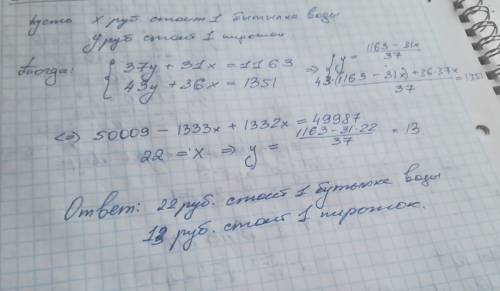 Пусть x руб стоит 1 бутылка воды
y руб стоит 1 пирожок
Тогда: { 37y + 31x = 1163 ⇒ { y = (1163 - 31x)/37
43y + 36x = 1351 (43·(1163 - 31x) + 36·37x)/37 = 1351
⇔ 50009 - 1333x + 1332x = 49987
22 = x ⇒ y = (1163 - 31·22)/37 = 13
Ответ: 22 руб. стоит 1 бутылка воды
13 руб. стоит 1 пирожок.